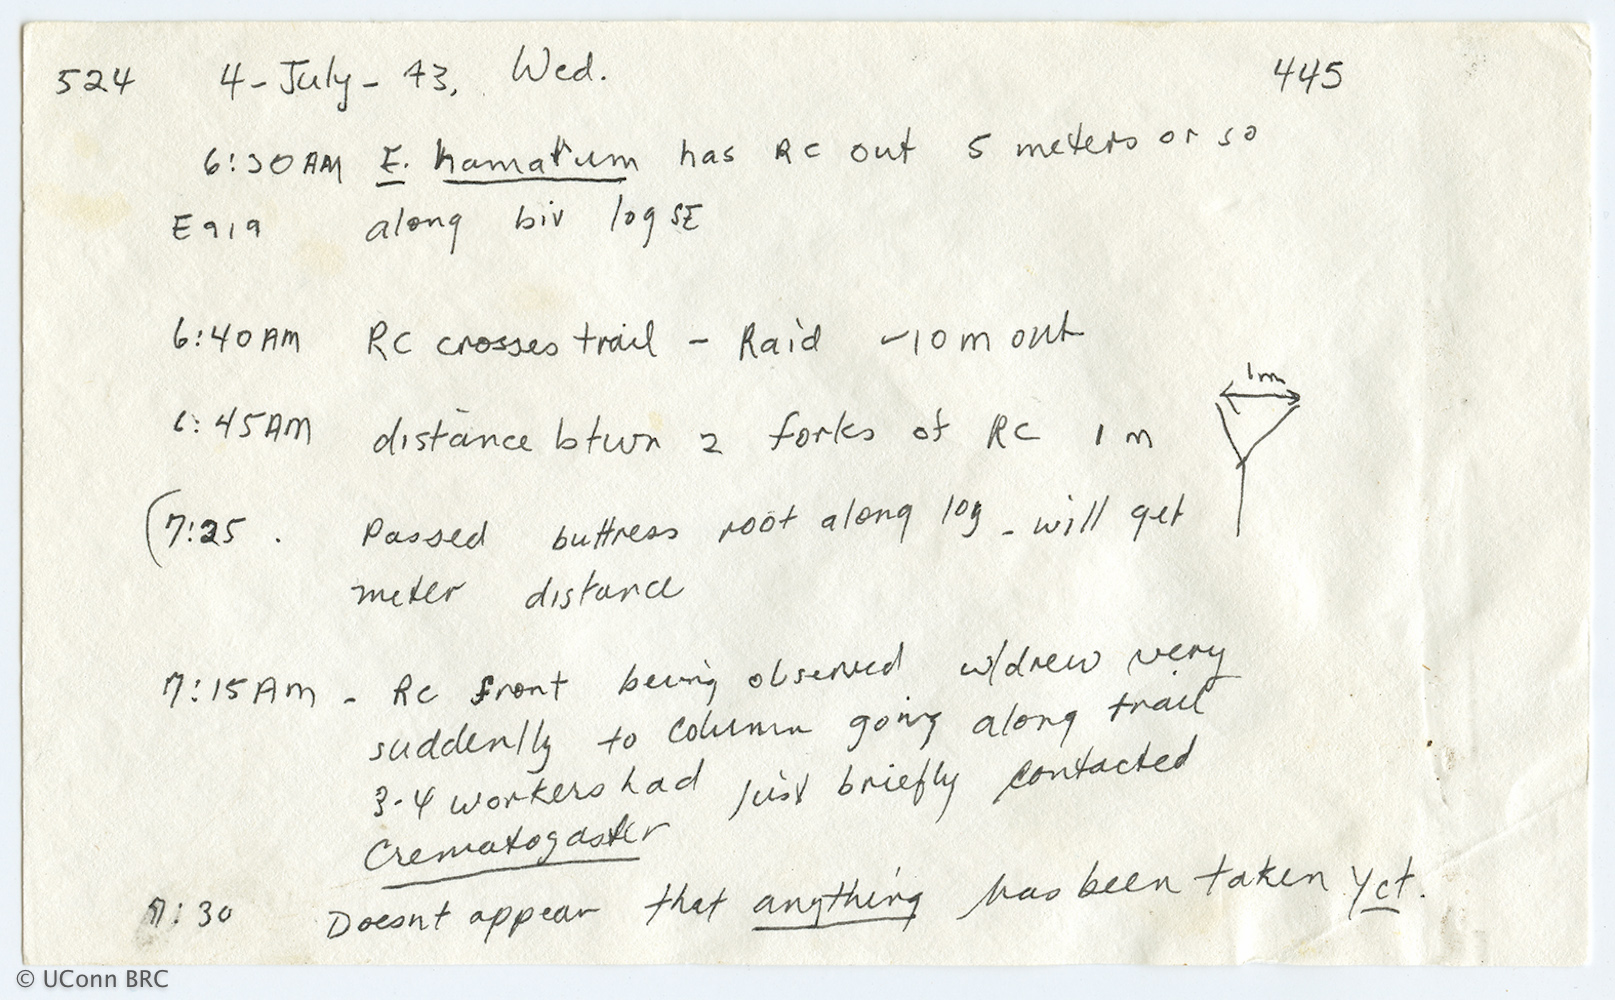 524 4-July-73, Wed. 445
6:30AM E. hamatum has RC out 5 meters or so
E919 along biv log SE
6:40AM RC crosses trail - Raid ~10 m out
1m
6:45AM distance btwn 2 forks of RC 1 m
(7:25. Passed buttress root along log - will get
meter distance
7:15AM - RC front being observed w/drew very
suddenlly to column going along trail
3-4 workers had just briefly contacted
Crematogaster
7:30 Doesnt appear that anything has been taken yet.
© UConn BRC